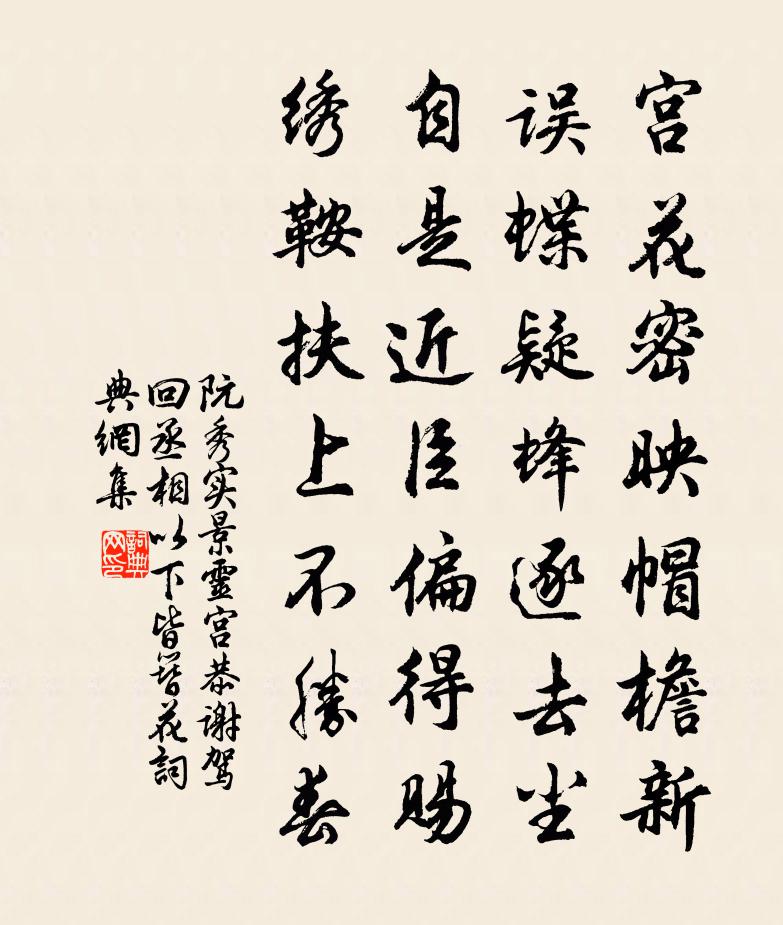 宫花密映帽檐新
误蝶疑蜂逐去尘
自是近臣偏得赐
绣鞍扶上不胜春
阮秀实景灵宫恭谢驾
回丞相以下皆簪花词
典網集
詞典
网印